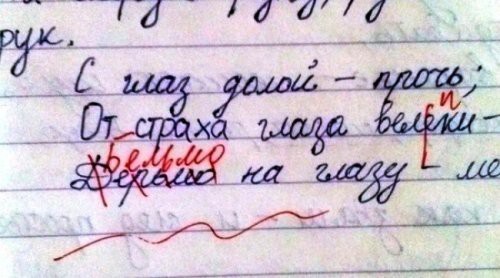 рук.
С глаз долой – прочь;
п
От страха глаза велики –
бельмо
Дерьмо на глазу – ме